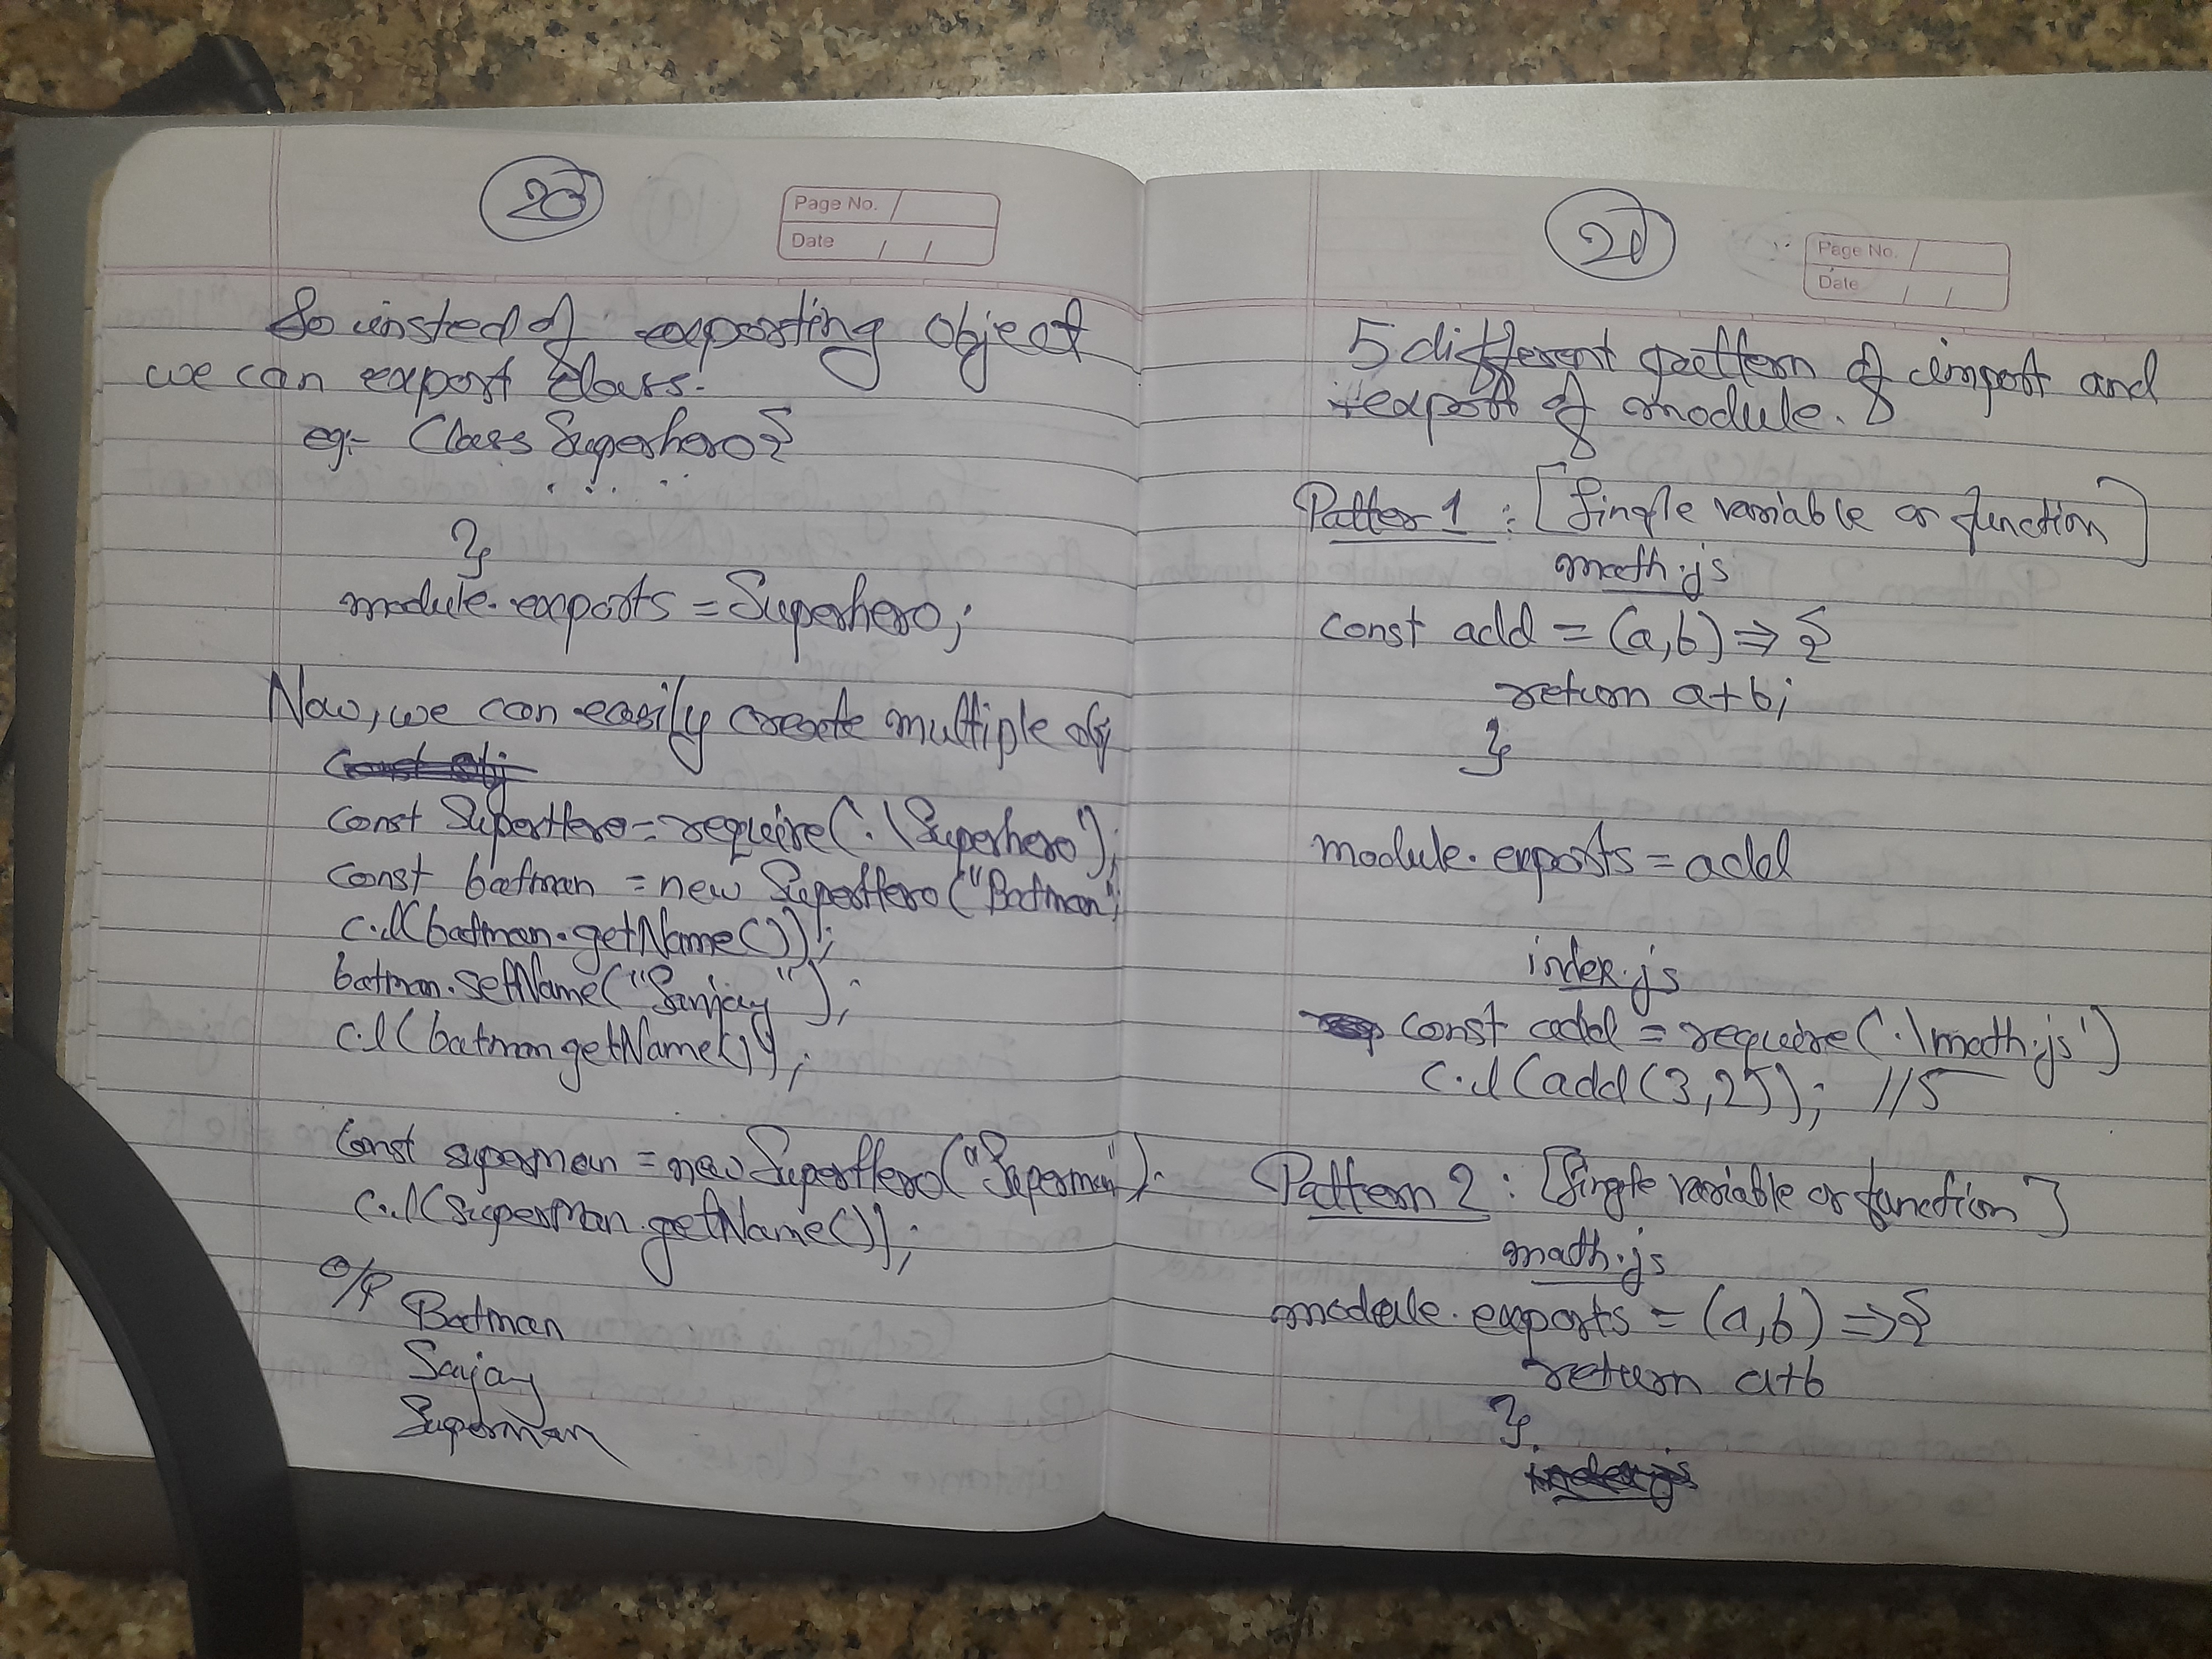 20
Page No.
Date
So instead of exporting object
we can export class.
eg:- Class Superhero {
. . . .
}
module.exports = Superhero;
Now, we can easily create multiple obj
const SuperHero = require(".\Superhero");
const batman = new SuperHero("Batman");
c.l(batman.getName());
batman.setName("Sanjay");
c.l(batman.getName());
const superman = new SuperHero("Superman");
c.l(superMan.getName());
O/P Batman
Sanjay
Superman
21
Page No.
Date
5 different pattern of import and
export of module.
Patter 1 : [Single variable or function]
math.js
const add = (a,b) => {
return a+b;
}
module.exports = add
index.js
const add = require('.\math.js')
c.l(add(3,2)); //5
Pattern 2 : [Single variable or function]
math.js
module.exports = (a,b) => {
return a+b
}